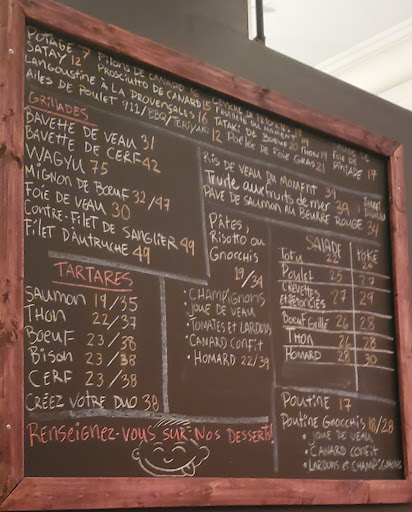 Potage 7 Pilons de canard
Satay 12 Prosciutto de canard 15
Langoustine à la provençales 16 Tataki de boeuf 20 Thon 19
Ailes de poulet 911/BBQ/Teriyaki 12 Poêlée de foie gras 21 Pintade 19
Grillades
Bavette de veau 31
Bavette de cerf 42
Wagyu 75
Mignon de boeuf 32/47
Foie de veau 30
Contre-filet de sanglier 49
Filet d'autruche 49
Ris de veau du moment 39
Truite aux fruits de mer 39
Pavé de saumon au beurre rouge 34
Tartares
Saumon 19/35
Thon 22/37
Boeuf 23/38
Bison 23/38
Cerf 23/38
Créez votre duo 38
Pâtes,
Risotto ou
Gnocchis
19/34
• Champignons
joue de veau
• Tomates et lardons
• Canard confit
• Homard 22/39
Salade Poké
Tofu 22
Poulet 25 27
Crevettes 27 29
Boeuf grillé 26 28
Thon 26 28
Homard 28 30
Poutine 17
Poutine Gnocchis 18/28
• joue de veau
• canard confit
• lardons et champignons
Renseignez-vous sur nos desserts!